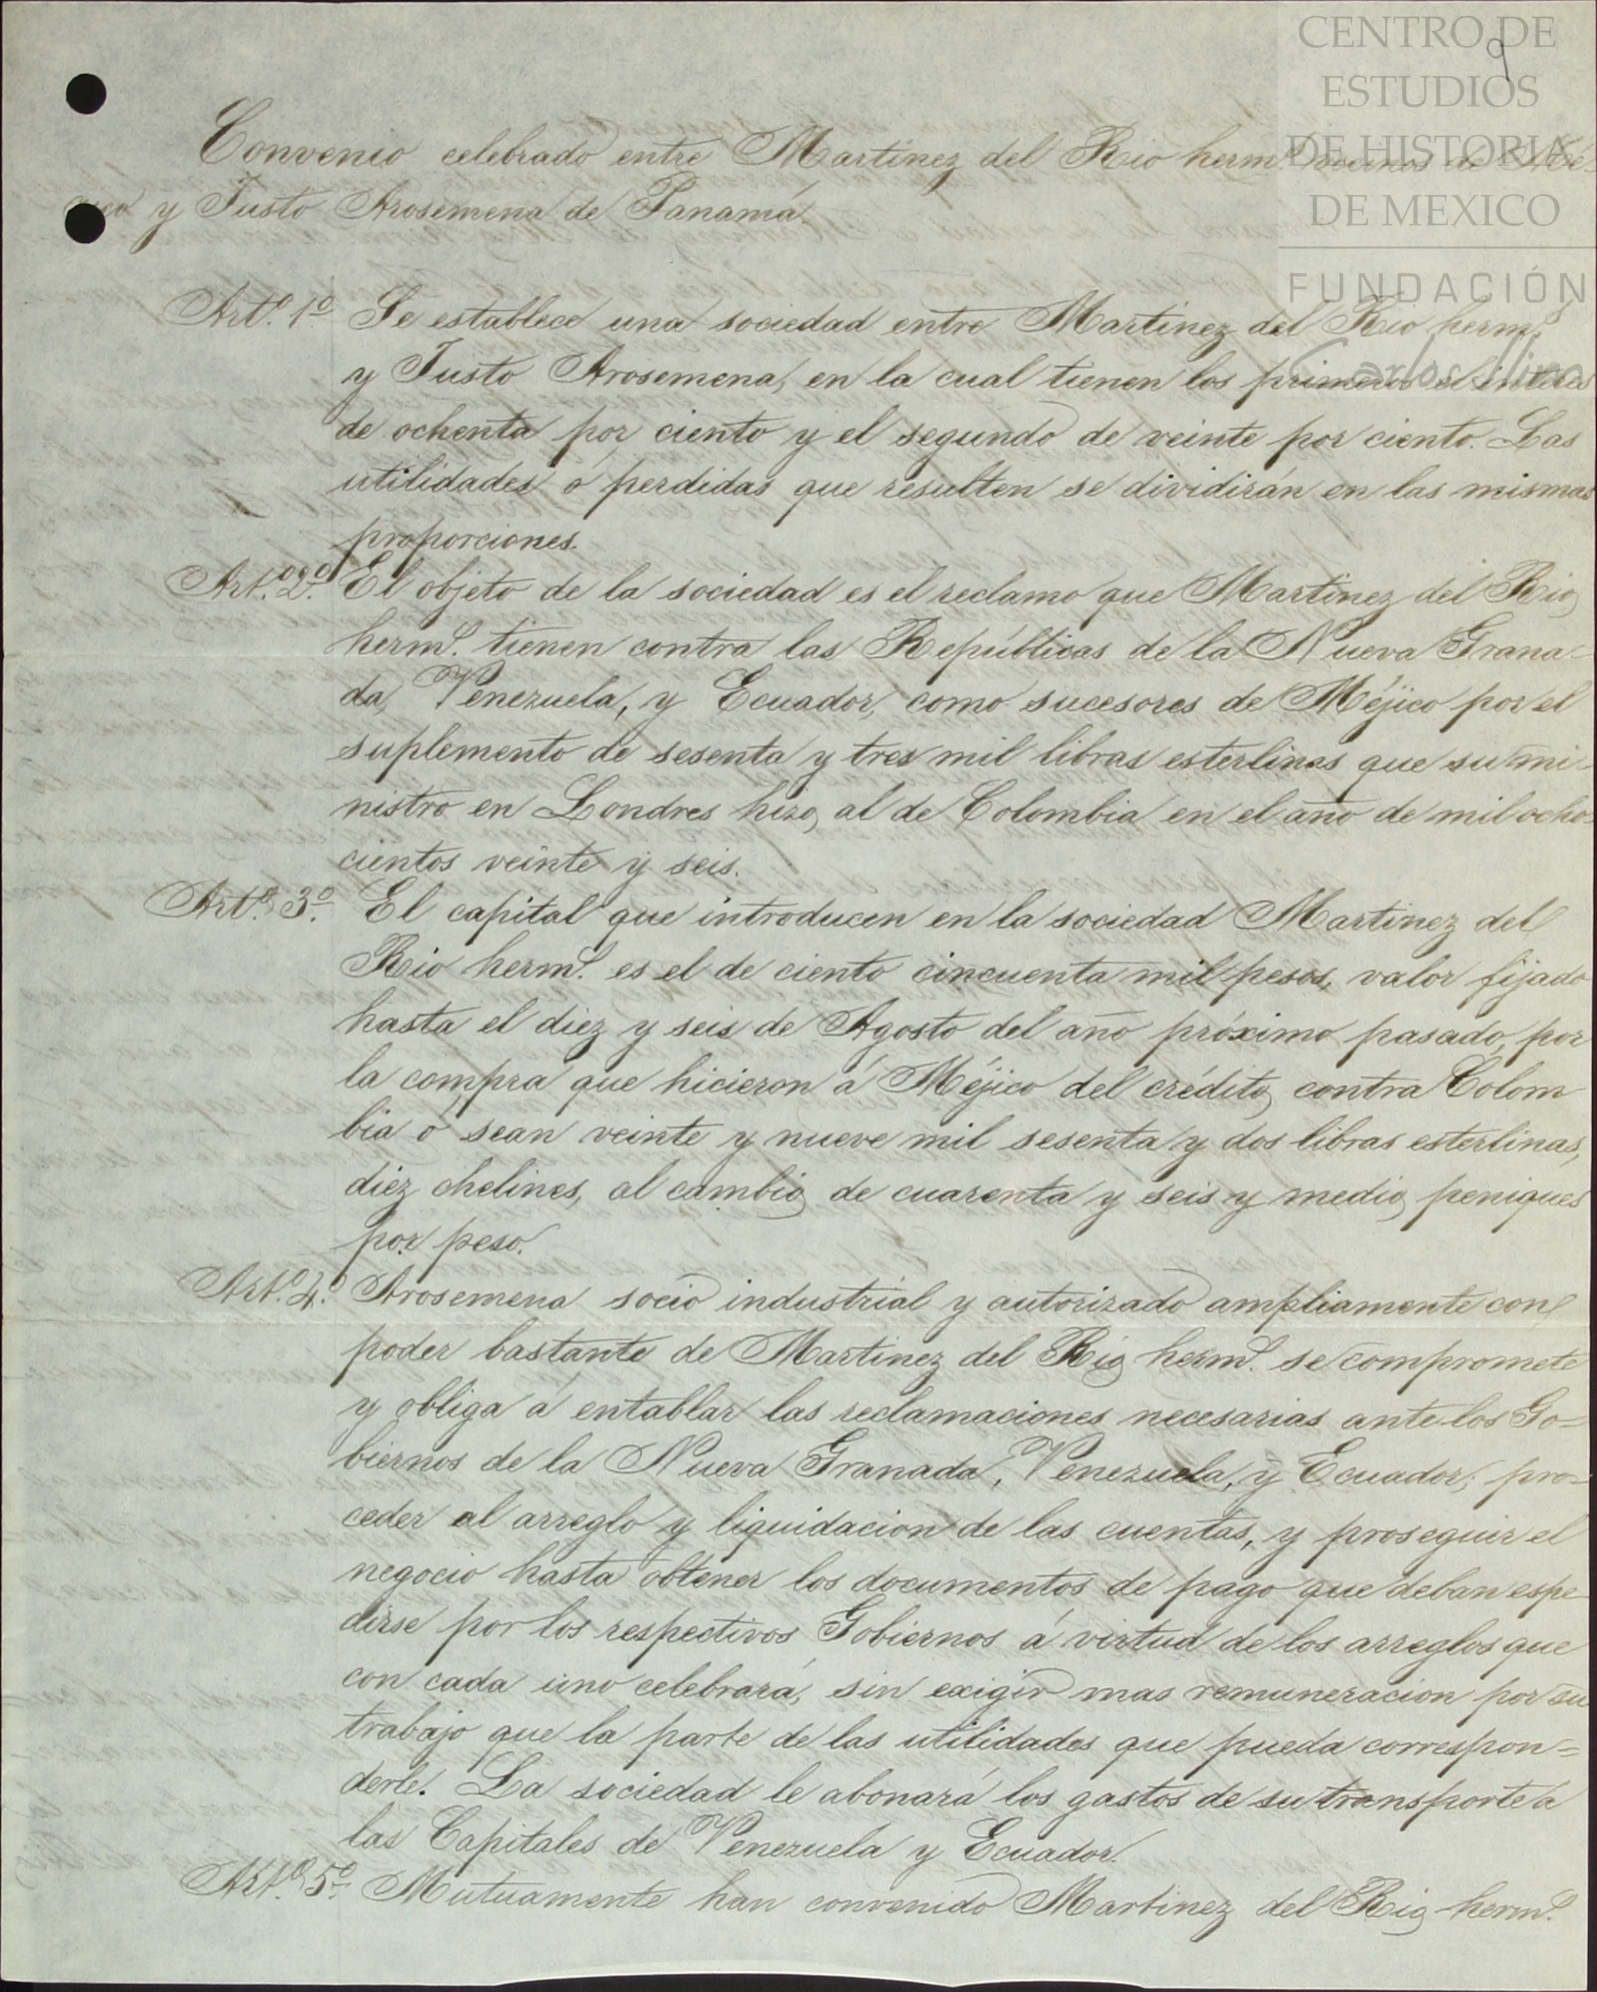 CENTRO DE
ESTUDIOS
DE HISTORIA
DE MEXICO
FUNDACIÓN
Carlos Slim
9
Convenio celebrado entre Martinez del Rio herm.s vecinos de Mé-
xico y Justo Arosemena de Panamá.
Art.o 1o Se establece una sociedad entre Martinez del Rio herm.s
y Justo Arosemena, en la cual tienen los primeros el interes
de ochenta por ciento y el segundo de veinte por ciento. Las
utilidades ó perdidas que resulten se dividirán en las mismas
proporciones.
Art.o 2o El objeto de la sociedad es el reclamo que Martinez del Rio
herm.s tienen contra las Repúblicas de la Nueva Grana-
da, Venezuela, y Ecuador, como sucesores de Méjico por el
suplemento de sesenta y tres mil libras esterlinas que su mi-
nistro en Londres hizo al de Colombia en el año de mil ocho-
cientos veinte y seis.
Art.o 3o El capital que introducen en la sociedad Martinez del
Rio herm.s es el de ciento cincuenta mil pesos, valor fijado
hasta el diez y seis de Agosto del año próximo pasado, por
la compra que hicieron á Méjico del crédito contra Colom
bia ó sean veinte y nueve mil sesenta y dos libras esterlinas,
diez chelines, al cambio de cuarenta y seis y medio peniques
por peso.
Art.o 4o Arosemena socio industrial y autorizado ampliamente con
poder bastante de Martinez del Rio herm.s se compromete
y obliga á entablar las reclamaciones necesarias ante los Go=
biernos de la Nueva Granada, Venezuela, y Ecuador; pro-
ceder al arreglo y liquidacion de las cuentas, y proseguir el
negocio hasta obtener los documentos de pago que deban espe-
dirse por los respectivos Gobiernos á virtud de los arreglos que
con cada uno celebrará, sin exigir mas remuneracion por su
trabajo que la parte de las utilidades que pueda correspon=
derle. La sociedad le abonará los gastos de su transporte á
las Capitales de Venezuela y Ecuador.
Art.o 5o Mutuamente han convenido Martinez del Rio herm.s